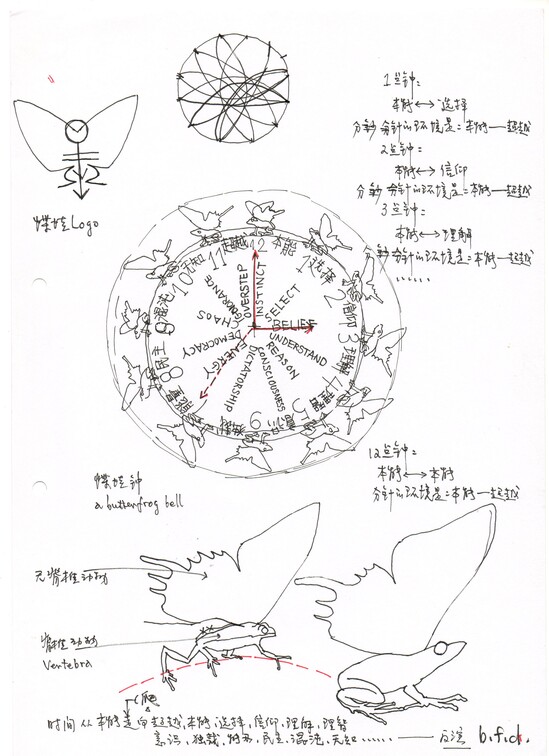 1点钟：
本能←→选择
分秒分针的环境是：本能—超越
2点钟：
本能←→信仰
分秒分针的环境是：本能—超越
3点钟：
本能←→理解
秒分针的环境是：本能—超越
……
蝶蛙Logo
12本能
1选择
2信仰
3理解
4理智
5意识
6独裁
8民主
9混沌
10无知
11超越
INSTINCT
SELECT
BELIEF
UNDERSTAND
REASON
CONSCIOUSNESS
DICTATORSHIP
ENERGY
DEMOCRACY
CHAOS
IGNORANCE
OVERSTEP
12点钟：
本能←→本能
分针的环境是本能—超越
蝶蛙钟
a butterfrog bell
无脊椎动物
脊椎动物
Vertebra
(爬)
时间从本能走向超越,本能,选择,信仰,理解,理智
意识,独裁,民主,混沌,无知……
b.f.c.